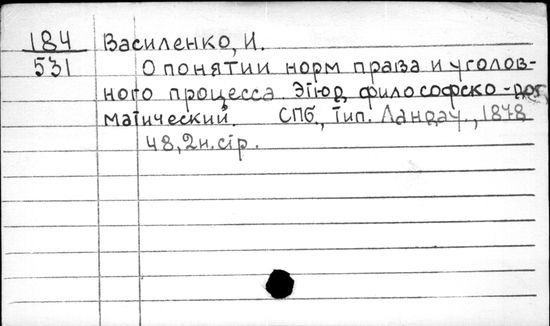 184 Василенко, И.
531 О понятии норм права и уголов-
ного процесса. Этюд философско-дог
матический. СПб., тип. Ландау., 1878
48, 2н. стр.